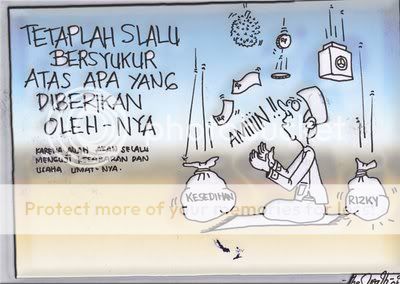 TETAPLAH SLALU
BERSYUKUR
ATAS APA YANG
DIBERIKAN
OLEH-NYA
KARENA ALLAH AKAN SELALU
DAN
USAHA UMAT-NYA.
AMIIIN..!!
KESEDIHAN
RIZKY
Protect more of your memories for less!